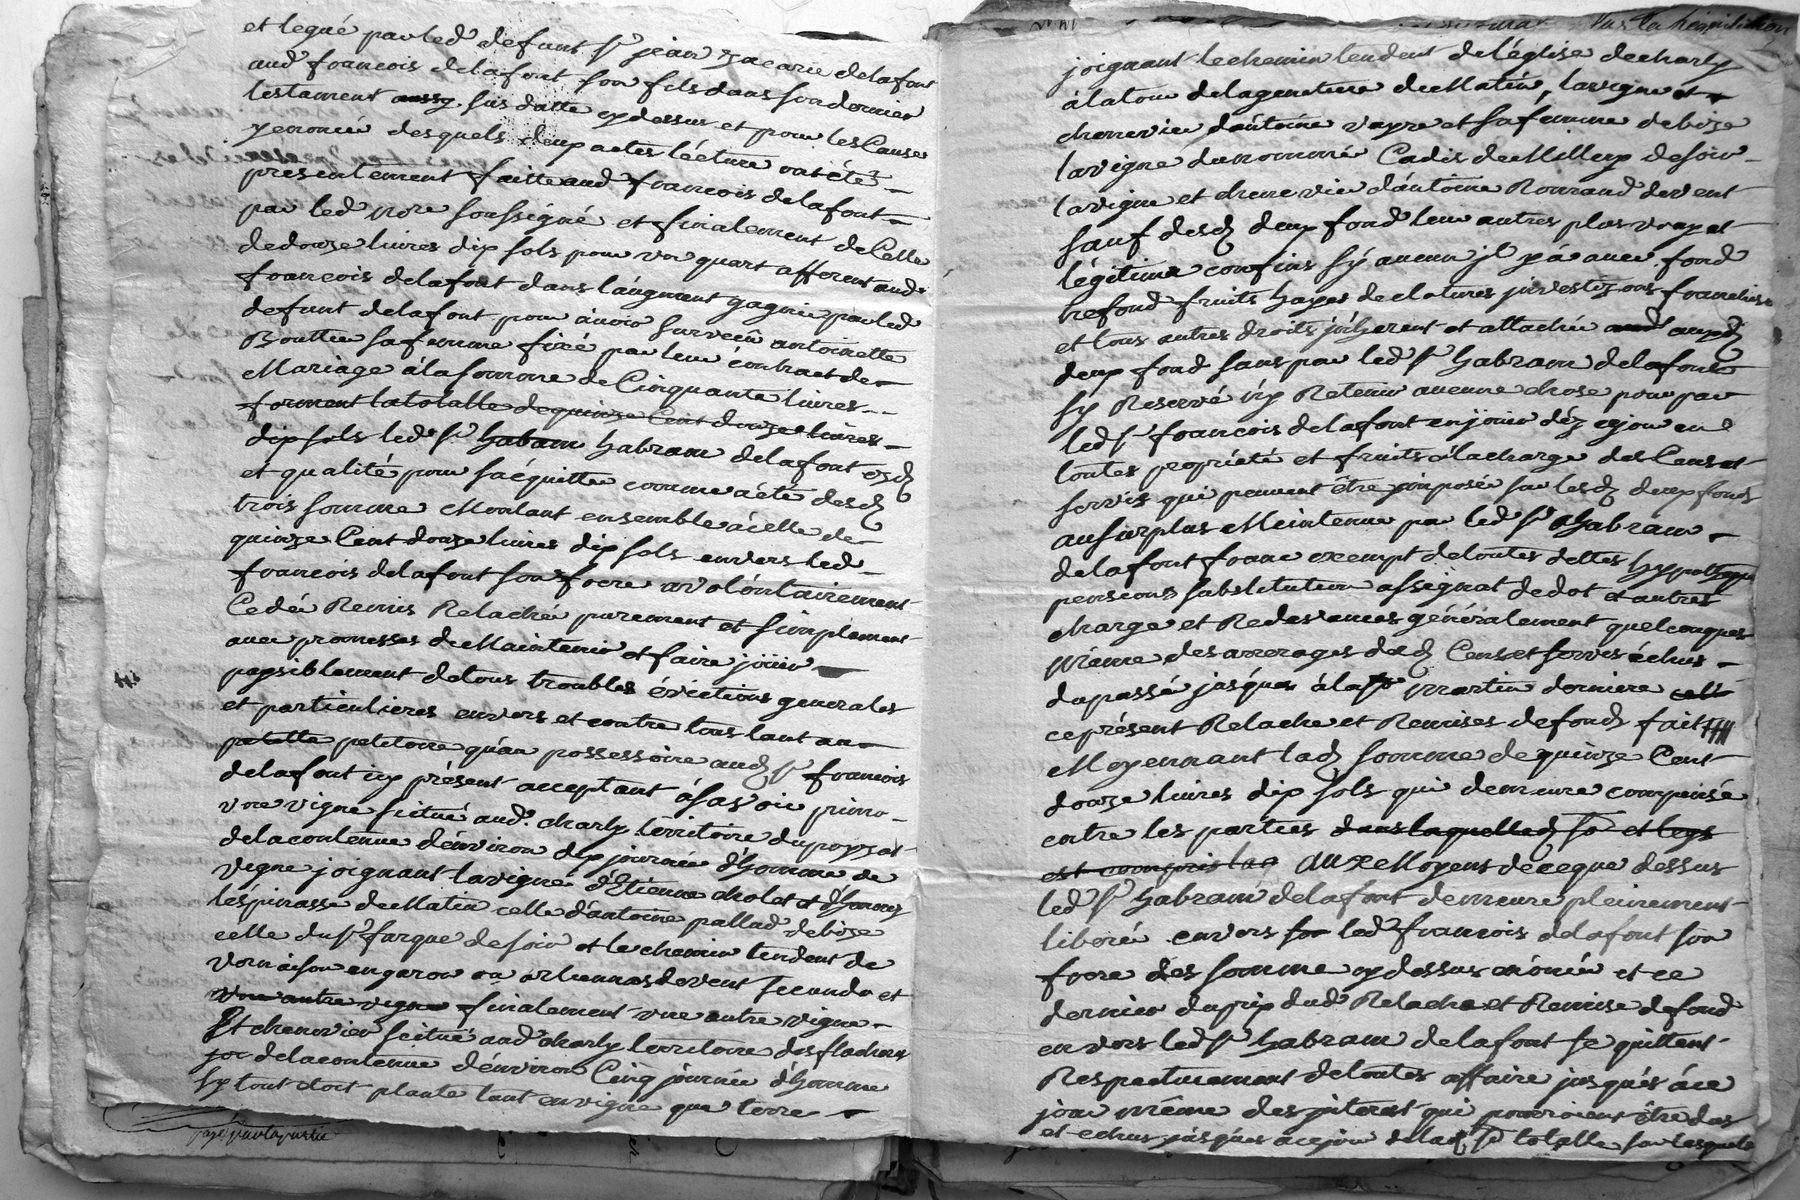 et legué par led defunt sr jean zacarie delafont
aud francois delafont son fils dans son dernier
testament aussy sus datte cydessus et pour les Causes
y enoncée desquels deux actes lécture oat été
presentement faitte aud francois delafont
par led nore soussigné et finalement de Celle
dedouze livres dix sols pour un quart afferent aud
francois delafont dans laugment gagnée par led
defunt delafont pour avoir survecü antoinette
Bouttier sa femme fixé par leur contract de
Mariage alasomme de Cinquante livres
forment latotalle de quinze Cent douze livres
dix sols led sr habram habram delafont
et qualité pour saéquitter comme a été desd
trois somme Montant ensemble acelle de
quinze Cent douze livres dix sols envers led
francois delafont son frere a volontairement
Cedée Remis Relaché purement et simplement
avec promesses de Maintenir et faire jöüir
paysiblement detous troubles évictions generales
et particulieres envers et contre tous tant au
petitoire quau possessoire aud sr francois
delafont icy présent acceptant asavoir primo
vne vigne scitué aud. charly térritoire dupoyzat
delacontenue dénviron dix journée dhomme de
vigne joignant lavigne dEtienne cholet et d
léspinasse deMatin celle dantoine pallud debize
celle dusr farque desoir et le chemin tendent de
vernaison ou orliennas devent secundo et
vne autre vigne finalement vne autre vigne
Et chenevier scitué aud charly territoire desflaches
delacontenue dénviron Cinq journée dhomme
sy tout doit planté tant en vigne que terre
joignant lechemin tendent deléglise decharly
alatour delagenetiere deMatin, lavigne et
chenevier dantoine vayre et safemme debize
lavigne dunommé Cadis deMillery desoir
lavigne et chenevier dantoine Rouraud devent
sauf desd deux fond leur autres plus vray et
légitime confins sy aucun jl y a avec fond
trefond fruits hayes declotures
et tous autres droits et attachée auxd
deux fond sans par led sr habram delafont
sy Reservé ny Retenir aucune chose pour par
led sr francois delafont en jouir déz cejour en
toutes propriété et fruits alacharge des Cens et
servis qui peuvent être jmposée sur lesd deux fonds
ausurplus Maintenue par led sr habram
delafont franc exempt detoutes dettes hypotheque
pensions substitution assignat dedot et autres
charge et Redevances généralement quelconques
Même des arrerages ded Cens et servis échus
dupassé jusques alast martin derniere
ceprésent Relache et Remises defond fait
Moyennant lad somme dequinze Cent
douze livres dix sols qui demeure compensé
entre les parties dans laquelled so et legs
est compris AuxeMoyens deceque dessus
led sr habram delafont demeure pleinement
liberée envers led francois delafont son
frere des somme cydessus enoncée et ce
dernier duprix dud Relache et Remise defond
envers led sr habram delafont se quittent
Respectivement detoutes affaire jusques ace
jour même des jnterest qui pouroient être dus
et echus jusques acejour delad totalle sur lesquels
payé par lapartie